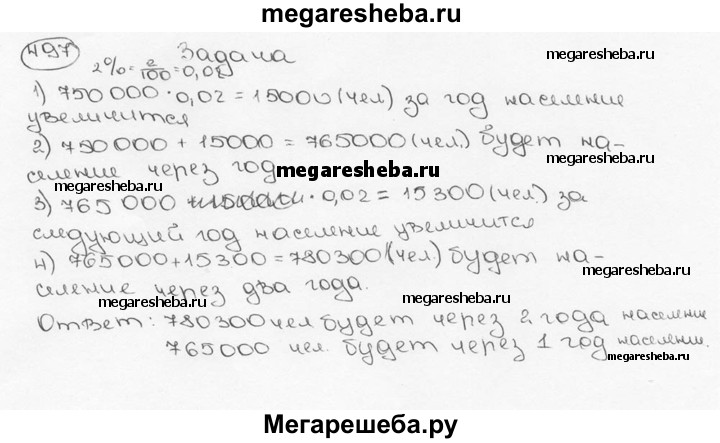 megaresheba.ru
497 Задача
2% = 2/100 = 0,02
megaresheba.ru
1) 750 000 · 0,02 = 15000 (чел) за год население
увеличится
2) 750 000 + 15000 = 765000 (чел.) будет на-
селение через год
megaresheba.ru
megaresheba.ru
megaresheba.ru
3) 765 000 · 0,02 = 15 300 (чел.) за
следующий год население увеличится
4) 765000 + 15300 = 780300 (чел) будет на-
селение через два года.
megaresheba.ru
megaresheba.ru
megaresheba.ru
Ответ: 780300 чел будет через 2 года население
765000 чел. будет через 1 год населении.
megaresheba.ru
Мегарешеба.ру